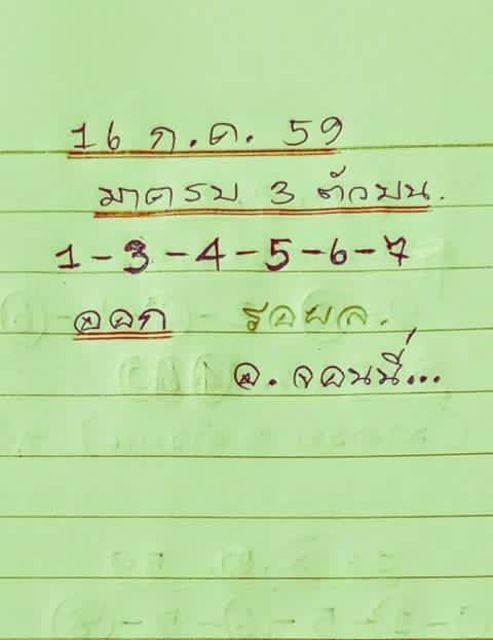 16 ก.ค. 59
มาครบ 3 ตัวบน.
1-3-4-5-6-7
ออก รอผล.
อ. จอนนี่...